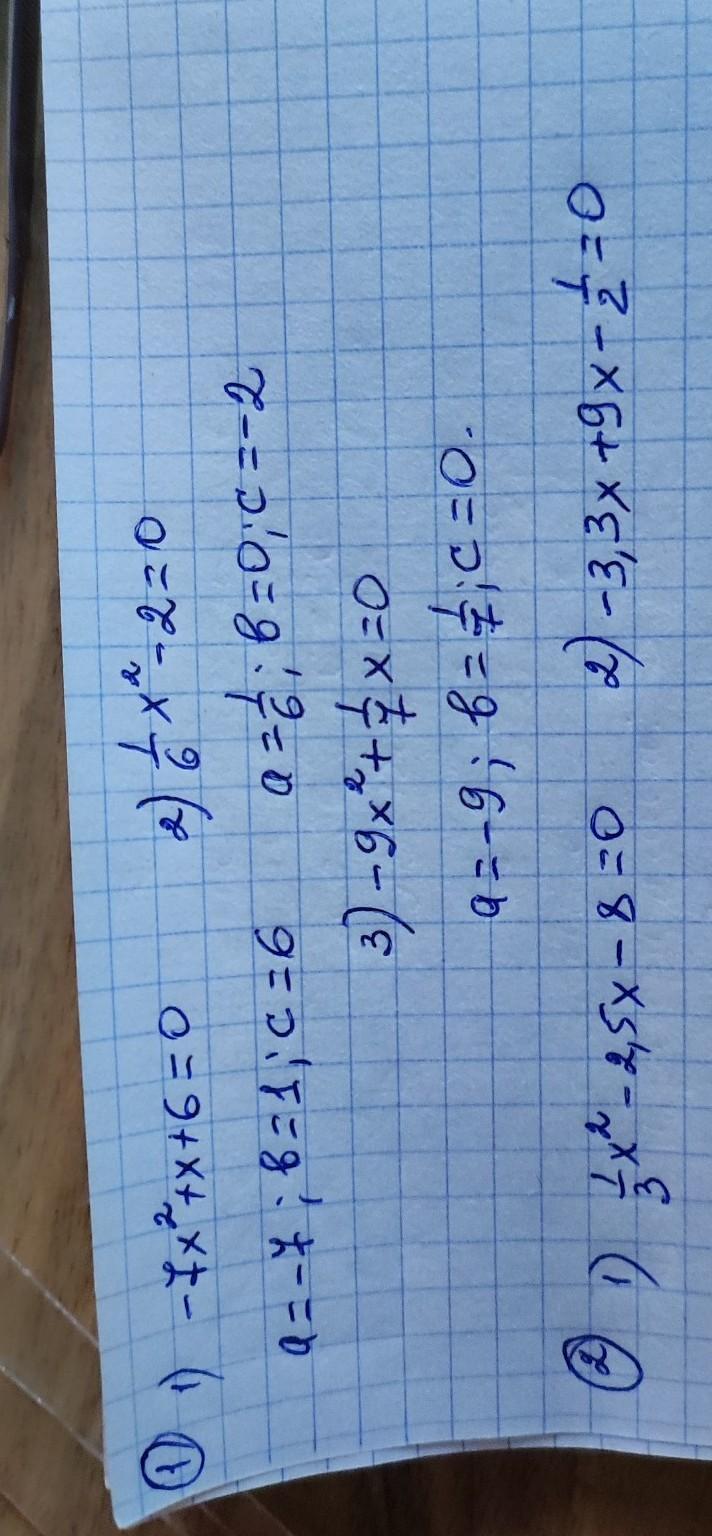 ① 1) -7x²+x+6=0 2) 1/6 x²-2=0
a=-7; в=1; c=6 a=1/6; в=0; c=-2
3) -9x²+1/7 x=0
a=-9; в=1/7; c=0.
② 1) 1/3 x²-2,5x-8=0 2) -3,3x+9x-1/2=0